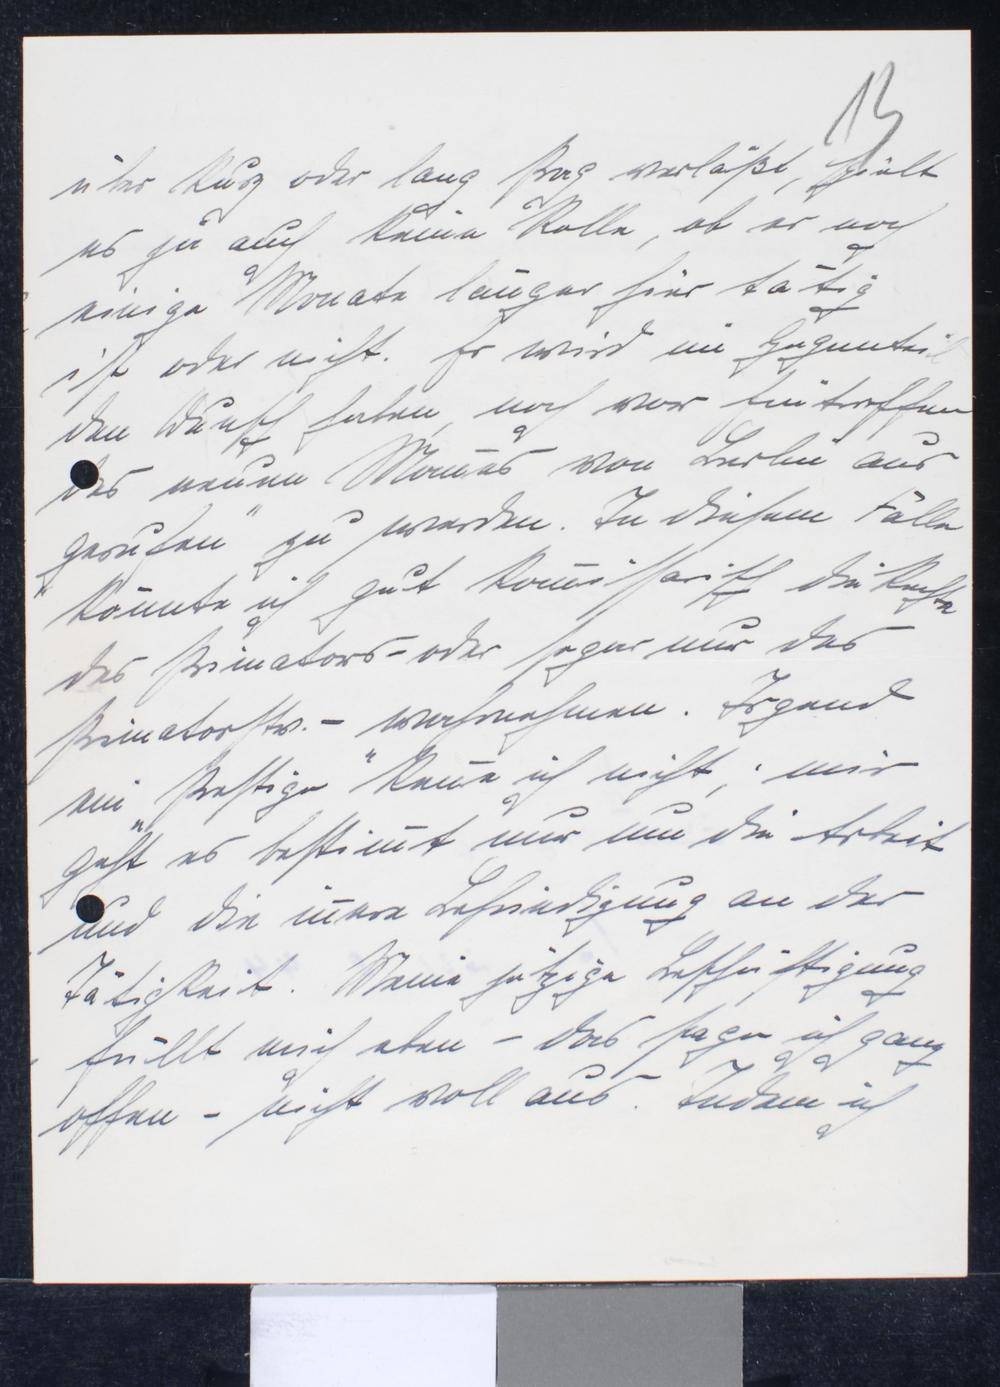 13
über kurz oder lang Prag verläßt, spielt
es ja auch keine Rolle, ob er noch
einige Monate länger hier tätig
ist oder nicht. Er wird im Gegenteil
den Wunsch haben, noch vor Eintreffen
des neuen Mannes von Berlin aus
„gerufen" zu werden. In diesem Falle
könnte ich gut kommissarisch die Rechte
des Primators - oder sogar nur des
Primatorstv. - wahrnehmen. Irgend
ein „Prestige" kenne ich nicht; mir
geht es bestimmt nur um die Arbeit
und die innere Befriedigung an der
Tätigkeit. Meine jetzige Beschäftigung
füllt mich eben - das sage ich ganz
offen - nicht voll aus. Indem ich